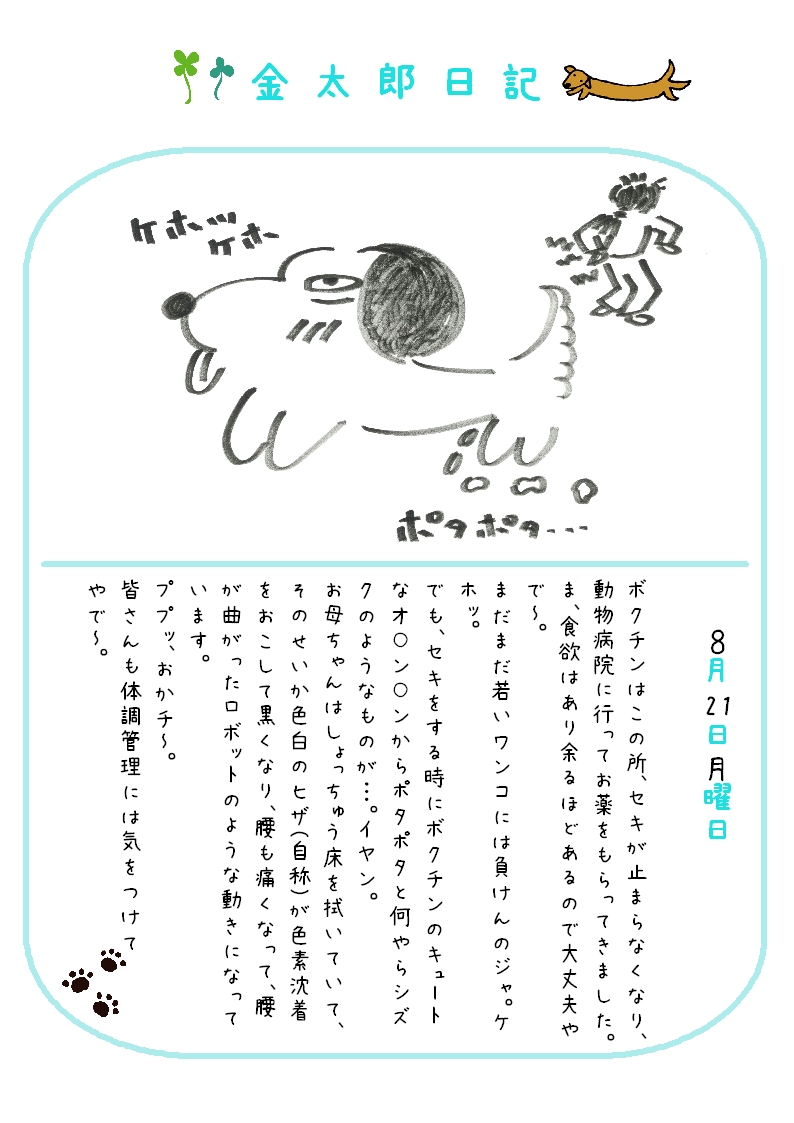 金太郎日記
ケホッ
ケホ
ポタポタ---
8月21日月曜日
ボクチンはこの所、セキが止まらなくなり、
動物病院に行ってお薬をもらってきました。
ま、食欲はあり余るほどあるので大丈夫や
で～。
まだまだ若いワンコには負けんのジャ。ケ
ホッ。
でも、セキをする時にボクチンのキュート
なオ〇ン〇ンからポタポタと何やらシズ
クのようなものが…。イヤン。
お母ちゃんはしょっちゅう床を拭いていて、
そのせいか色白のヒザ(自称)が色素沈着
をおこして黒くなり、腰も痛くなって、腰
が曲がったロボットのような動きになって
います。
ププッ、おかチ～。
皆さんも体調管理には気をつけて
やで～。